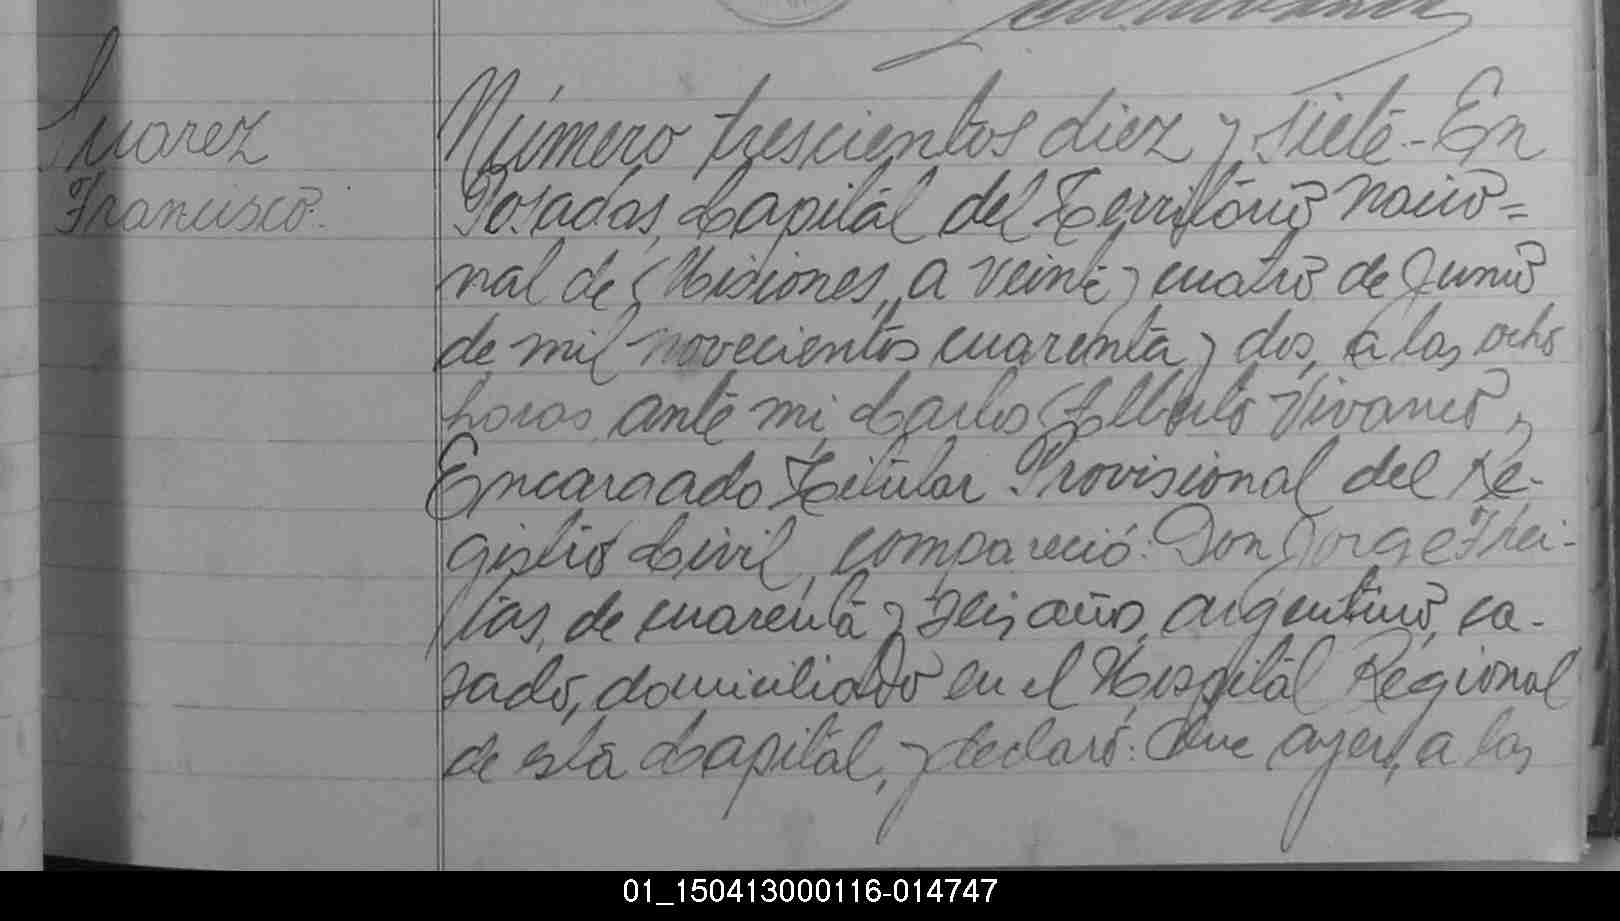 Suarez
Francisco.
Número trescientos diez y siete - En
Posadas, Capital del Territorio Nacio=
nal de Misiones, a veinte y cuatro de Junio
de mil novecientos cuarenta y dos, a las ocho
horas, ante mi, Carlos Alberto Vivanco,
Encargado Titular Provisional del Re-
gistro Civil, compareció: Don Jorge Frei-
tas, de cuarenta y seis años, argentino, ca-
sado, domiciliado en el Hospital Regional
de esta Capital, y declaró: Que ayer, a las
01_150413000116-014747